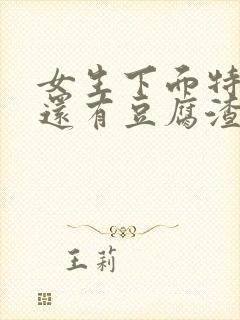 女生下面特
還有豆腐渣
王莉